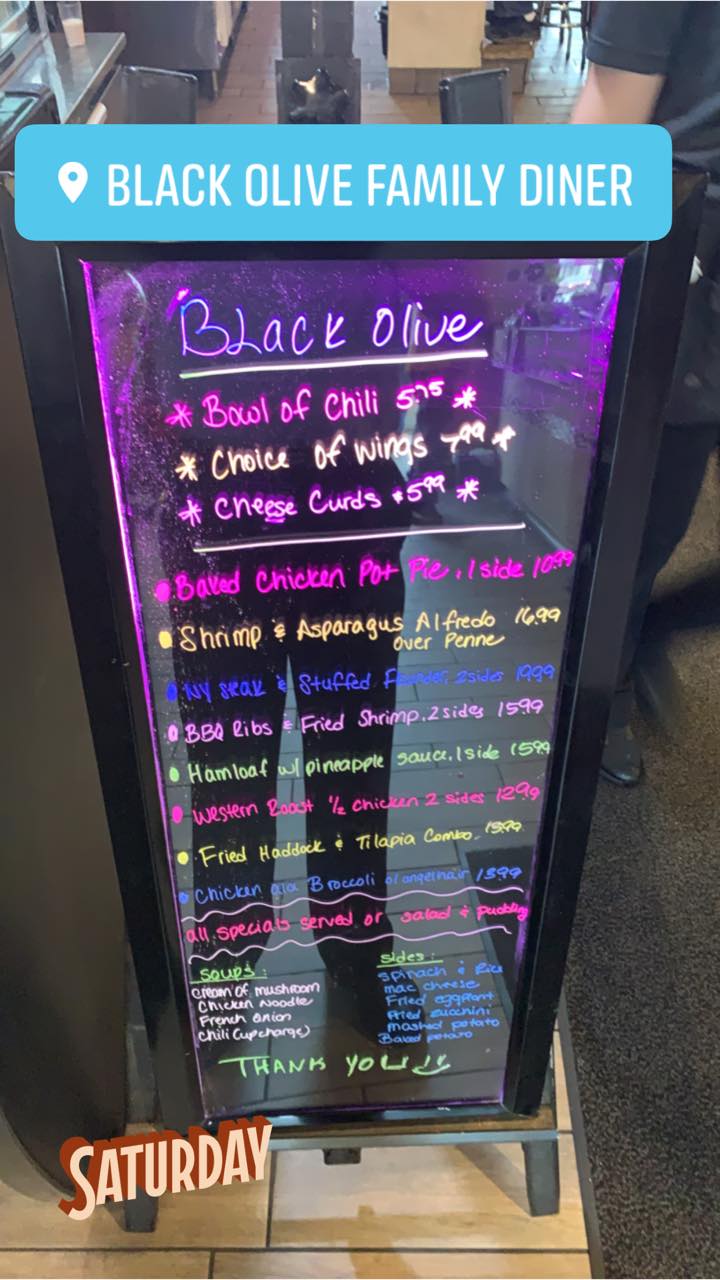 BLACK OLIVE FAMILY DINER
BLack Olive
* Bowl of Chili 5.75 *
* Choice of wings 7.99 *
* Cheese Curds $5.99 *
Baked Chicken Pot Pie, 1 side 10.99
Shrimp & Asparagus Alfredo 16.99
over Penne
NY & Stuffed 2 sides 19.99
BBQ Ribs & Fried Shrimp, 2 sides 15.99
Hamloaf w/ pineapple sauce, 1 side 15.99
Western Roast 1/2 chicken 2 sides 12.99
Fried Haddock & Tilapia Combo. 15.99
Chicken ala Broccoli angelhair 13.99
all specials served or salad & pudding
Soups:
Cream of mushroom
Chicken Noodle
French Onion
Chili (upcharge)
Sides:
spinach & Rice
mac cheese
Fried eggplant
Fried zucchini
mashed potato
Baked potato
THANK YOU!!
SATURDAY